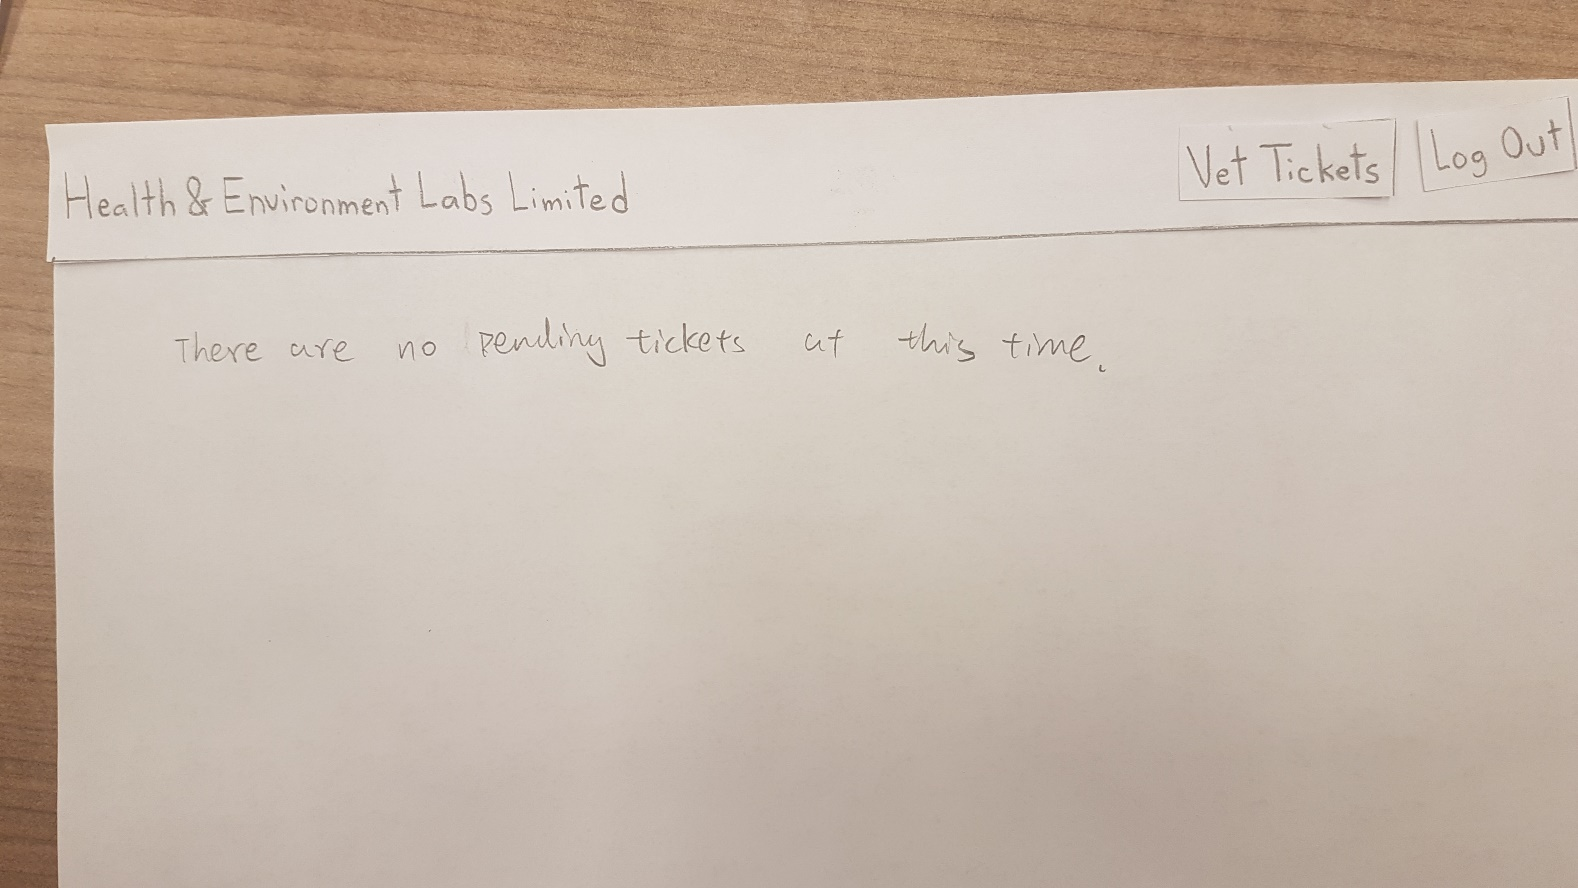 Health & Environment Labs Limited
Vet Tickets
Log Out
There are no pending tickets at this time.